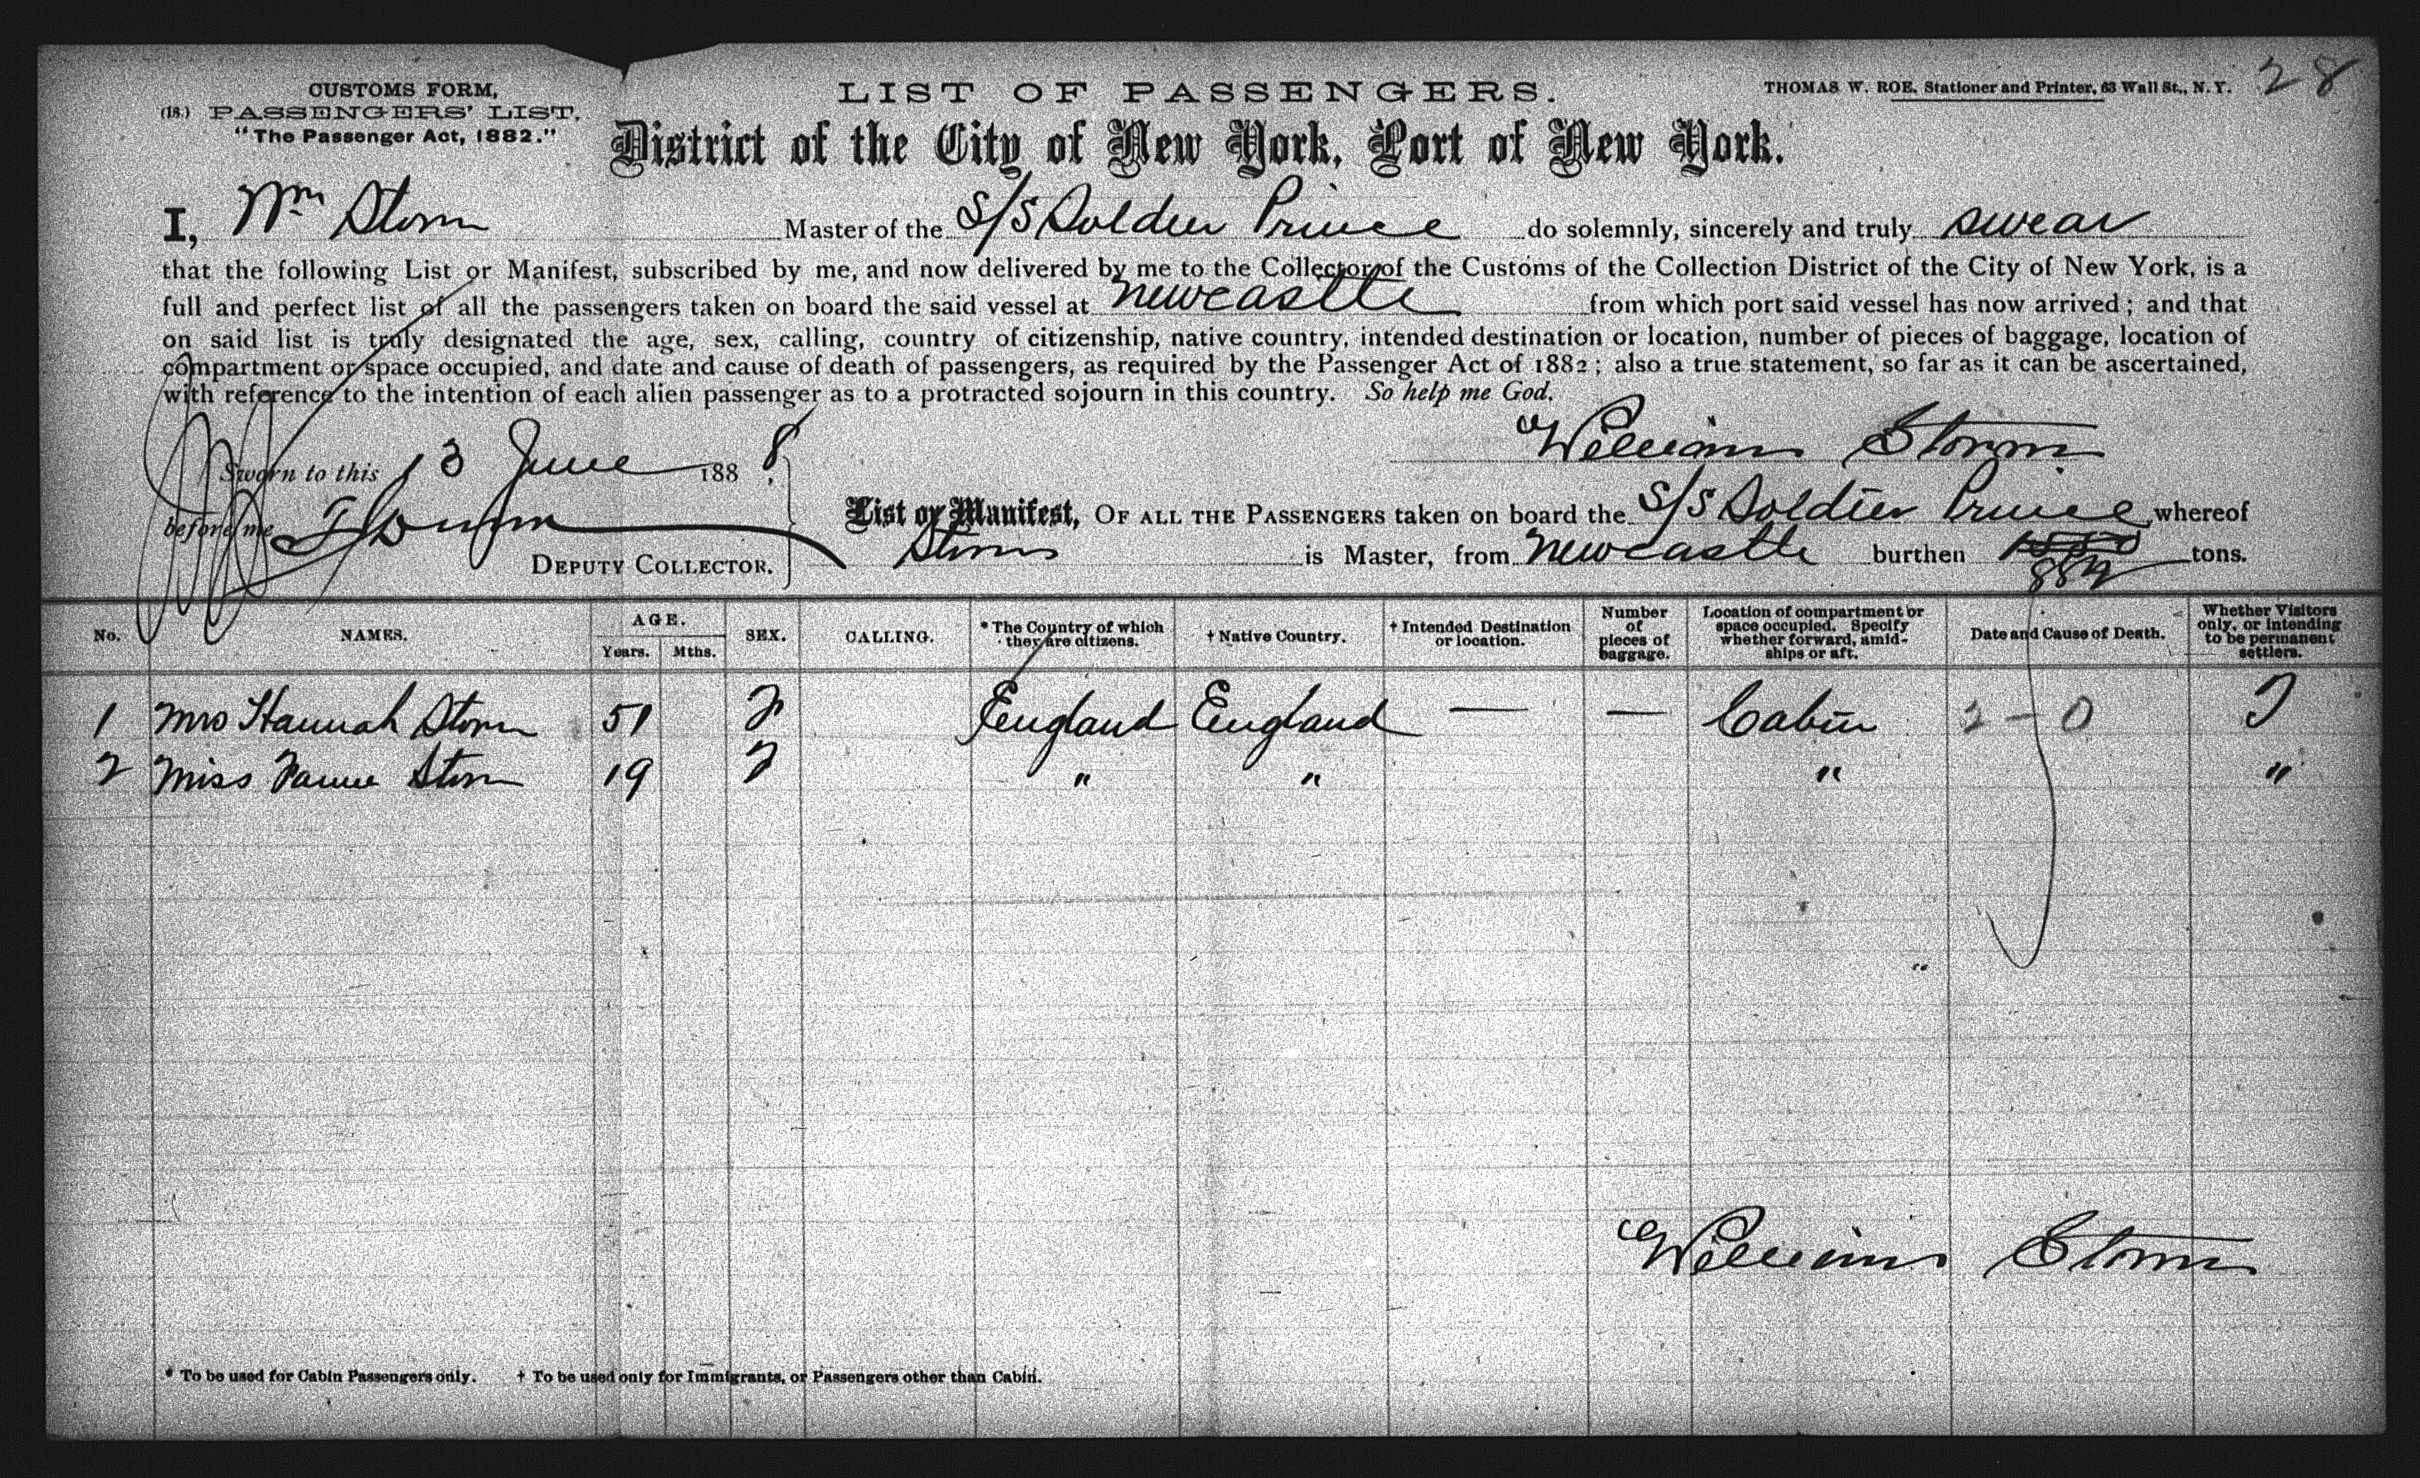 28
CUSTOMS FORM,
(18.) PASSENGERS' LIST,
"The Passenger Act, 1882."
LIST OF PASSENGERS.
THOMAS W. ROE, Stationer and Printer, 63 Wall St., N.Y.
District of the City of New York, Port of New York.
I, Wm Storm Master of the S/S Soldier Prince do solemnly, sincerely and truly swear
that the following List or Manifest, subscribed by me, and now delivered by me to the Collector of the Customs of the Collection District of the City of New York, is a
full and perfect list of all the passengers taken on board the said vessel at Newcastle from which port said vessel has now arrived; and that
on said list is truly designated the age, sex, calling, country of citizenship, native country, intended destination or location, number of pieces of baggage, location of
compartment or space occupied, and date and cause of death of passengers, as required by the Passenger Act of 1882; also a true statement, so far as it can be ascertained,
with reference to the intention of each alien passenger as to a protracted sojourn in this country. So help me God.
William Storm
Sworn to this 13 June 1888,
before me
DEPUTY COLLECTOR.
List or Manifest, OF ALL THE PASSENGERS taken on board the S/S Soldier Prince whereof
Storm is Master, from Newcastle burthen tons.
No. NAMES. AGE. Years. Mths. SEX. CALLING. * The Country of which they are citizens. † Native Country. † Intended Destination or location. Number of pieces of baggage. Location of compartment or space occupied. Specify whether forward, amidships or aft. Date and Cause of Death. Whether Visitors only, or intending to be permanent settlers.
1 Mrs Hannah Storm 51 F England England — — Cabin 2 - 0 T
2 Miss Fannie Storm 19 F " " " "
William Storm
* To be used for Cabin Passengers only. † To be used only for Immigrants, or Passengers other than Cabin.